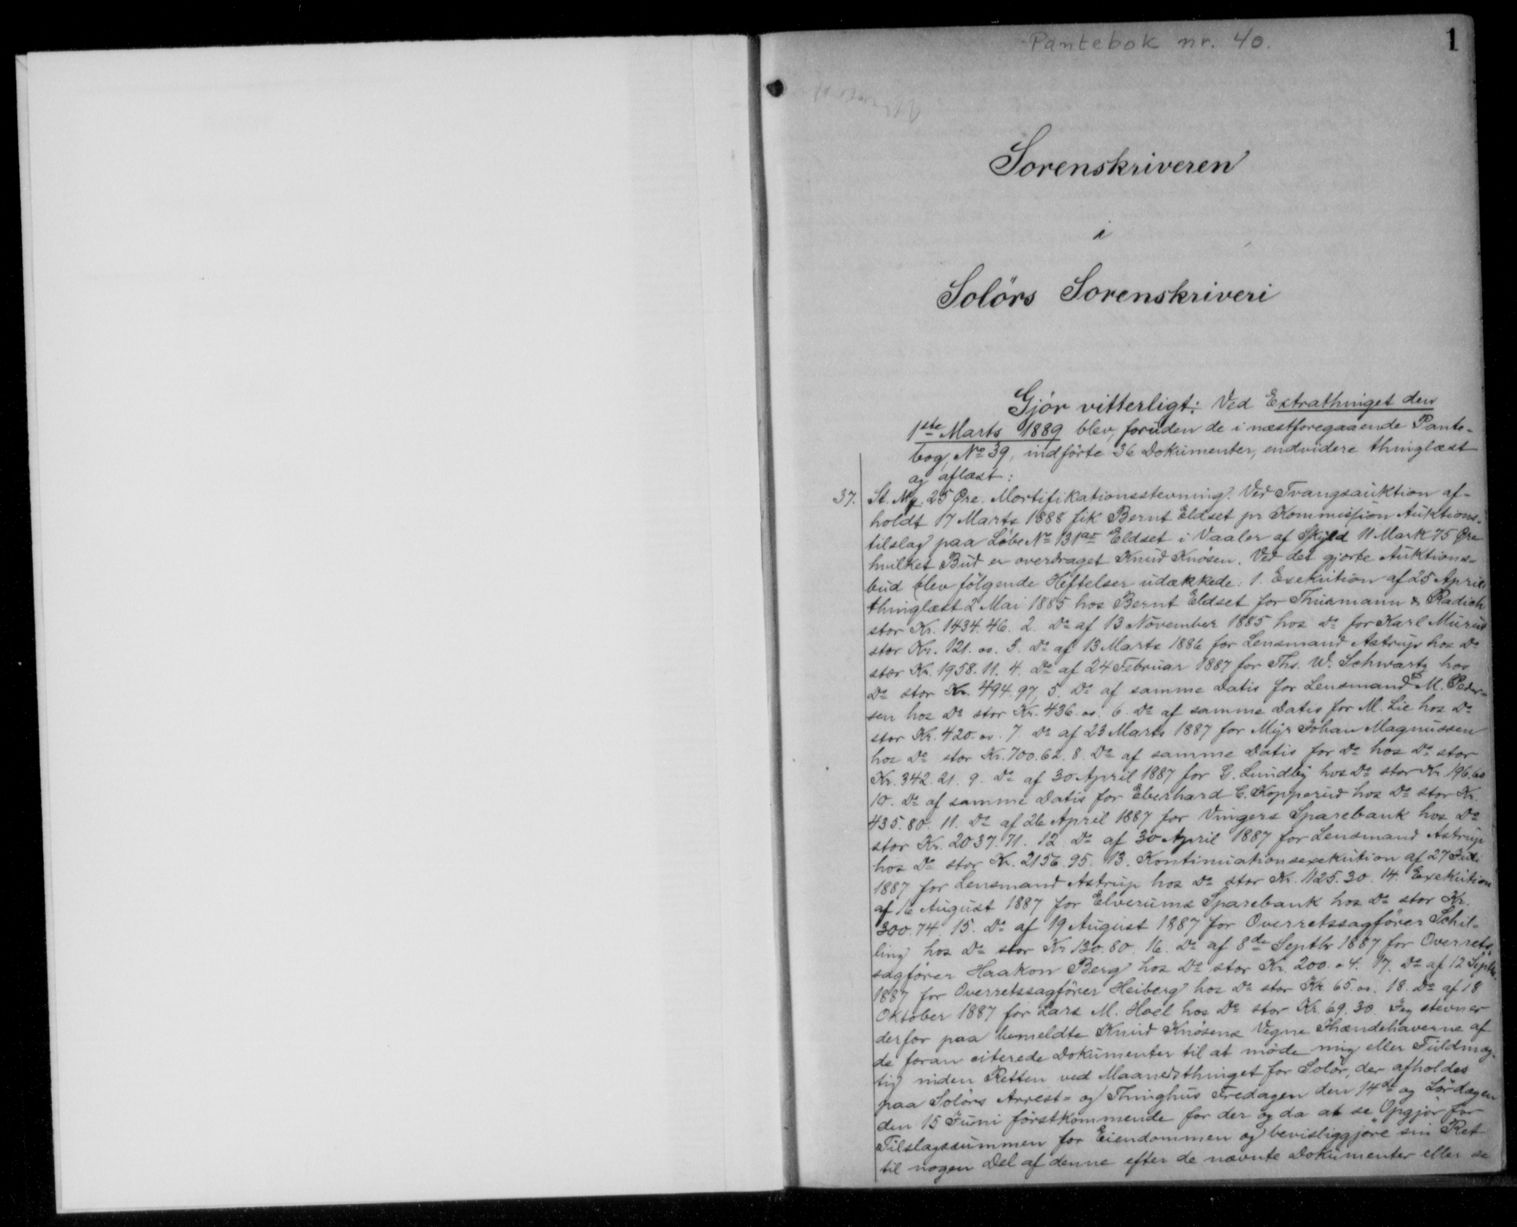 Pantebok nr. 40.
1
Sorenskriveren
i
Solörs Sorenskriveri
Gjör vitterligt: Ved Extrathinget den
1ste Marts 1889 blev, foruden de i næstforegaaende Pante-
bog, No 39, indförte 36 Dokumenter, endvidere thinglæst
og aflæst:
37. St. Mg. 25 Øre. Mortifikationsstevning. Ved Tvangsauktion af-
holdt 17 Marts 1888 fik Bernt Eldset pr Kommission Auktions-
tilslag paa Löbe No 131 Eldset i Vaaler af Skyld 11 Mark 75 Øre
hvilket Bud er overdraget Knud Knösen. Ved det gjorte Auktions-
bud blev fölgende Heftelser udækkede: 1. Exekution af 25 April
thinglæst 2 Mai 1885 hos Bernt Eldset for Thurmann & Radich
stor Kr. 1434.46. 2. Do af 13 November 1885 hos Do for Karl
stor Kr. 121. oo. 3. Do af 13 Marts 1886 for Lensmand Astrup hos Do
stor Kr. 1958. 11. 4. Do af 24 Februar 1887 for Ths. W. Schwartz hos
Do stor Kr. 494.97, 5. Do af samme Datis for Lensmand M. Peder-
sen hos Do stor Kr. 436. oo. 6. Do af samme Datis for M. Lie hos Do
stor Kr. 420. oo. 7 Do af 23 Marts 1887 for Johan Magnussen
hos Do stor Kr. 700.62. 8. Do af samme Datis for Do hos Do stor
Kr. 342.21. 9. Do af 30 April 1887 for G. Lundby hos Do stor Kr. 196.60
10. Do af samme Datis for Eberhard C. Kopperud hos Do stor Kr.
435.80. 11. Do af 26 April 1887 for Vingers Sparebank hos Do
stor Kr. 2037.71. 12. Do af 30 April 1887 for Lensmand Astrup
hos Do stor Kr. 2156.95. 13. Kontinuationsexekution af 27
1887 for Lensmand Astrup hos Do stor Kr. 1125.30. 14. Exekution
af 16 August 1887 for Elverums Sparebank hos Do stor Kr.
300.74. 15. Do af 19 August 1887 for Overretssagförer Schil-
ling hos Do stor Kr 130.80. 16. Do af 8de Septbr 1887 for Overrets-
sagförer Haakon Berg hos Do stor Kr. 200. 04. 17. Do af 12 Septbr
1887 for Overretssagförer Heiberg hos Do stor Kr. 65. oo. 18. Do af 18
Oktober 1887 for Lars M. Hoel hos Do stor Kr. 69.30. Jeg stevner
derfor paa bemeldte Knud Knösens Vegne Ihændehaverne af
de foran citerede Dokumenter til at möde mig eller Fuldmæg-
tig inden Retten ved Maanedsthinget for Solör, der afholdes
paa Solörs Arrest- og Thinghus Fredagen den 14de og Lördagen
den 15 Juni förstkommende for der og da at se Opgjör for
Tilslagssummen for Eiendommen og bevisliggjöre sin Ret
til nogen Del af denne efter de nævnte Dokumenter eller se